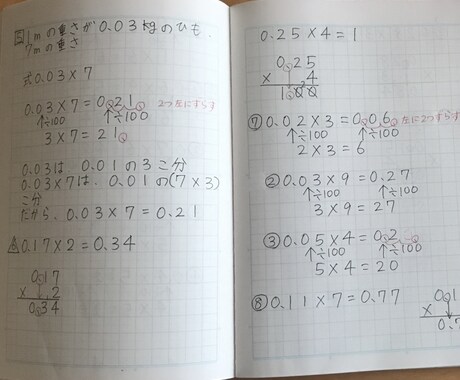 5 1mの重さが0.03kgのひも.
7mの重さ
式0.03×7
0.03×7=0.21 2つ左にずらす
↑÷100 ↑÷100
3×7=21
0.03は 0.01の3こ分
0.03×7は、0.01の(7×3)
こ分
だから、0.03×7=0.21
△0.17×2=0.34
0.17
× 2
0.34
0.25×4=1
0.25
× 4
1.00
⑦0.02×3=0.06 左に2つずらす
↑÷100 ↑÷100
2×3=6
②0.03×9=0.27
↑÷100 ↑÷100
3×9=27
③0.05×4=0.2
↑÷100 ↑÷100
5×4=20
⑧0.11×7=0.77
0.1
×
0.7